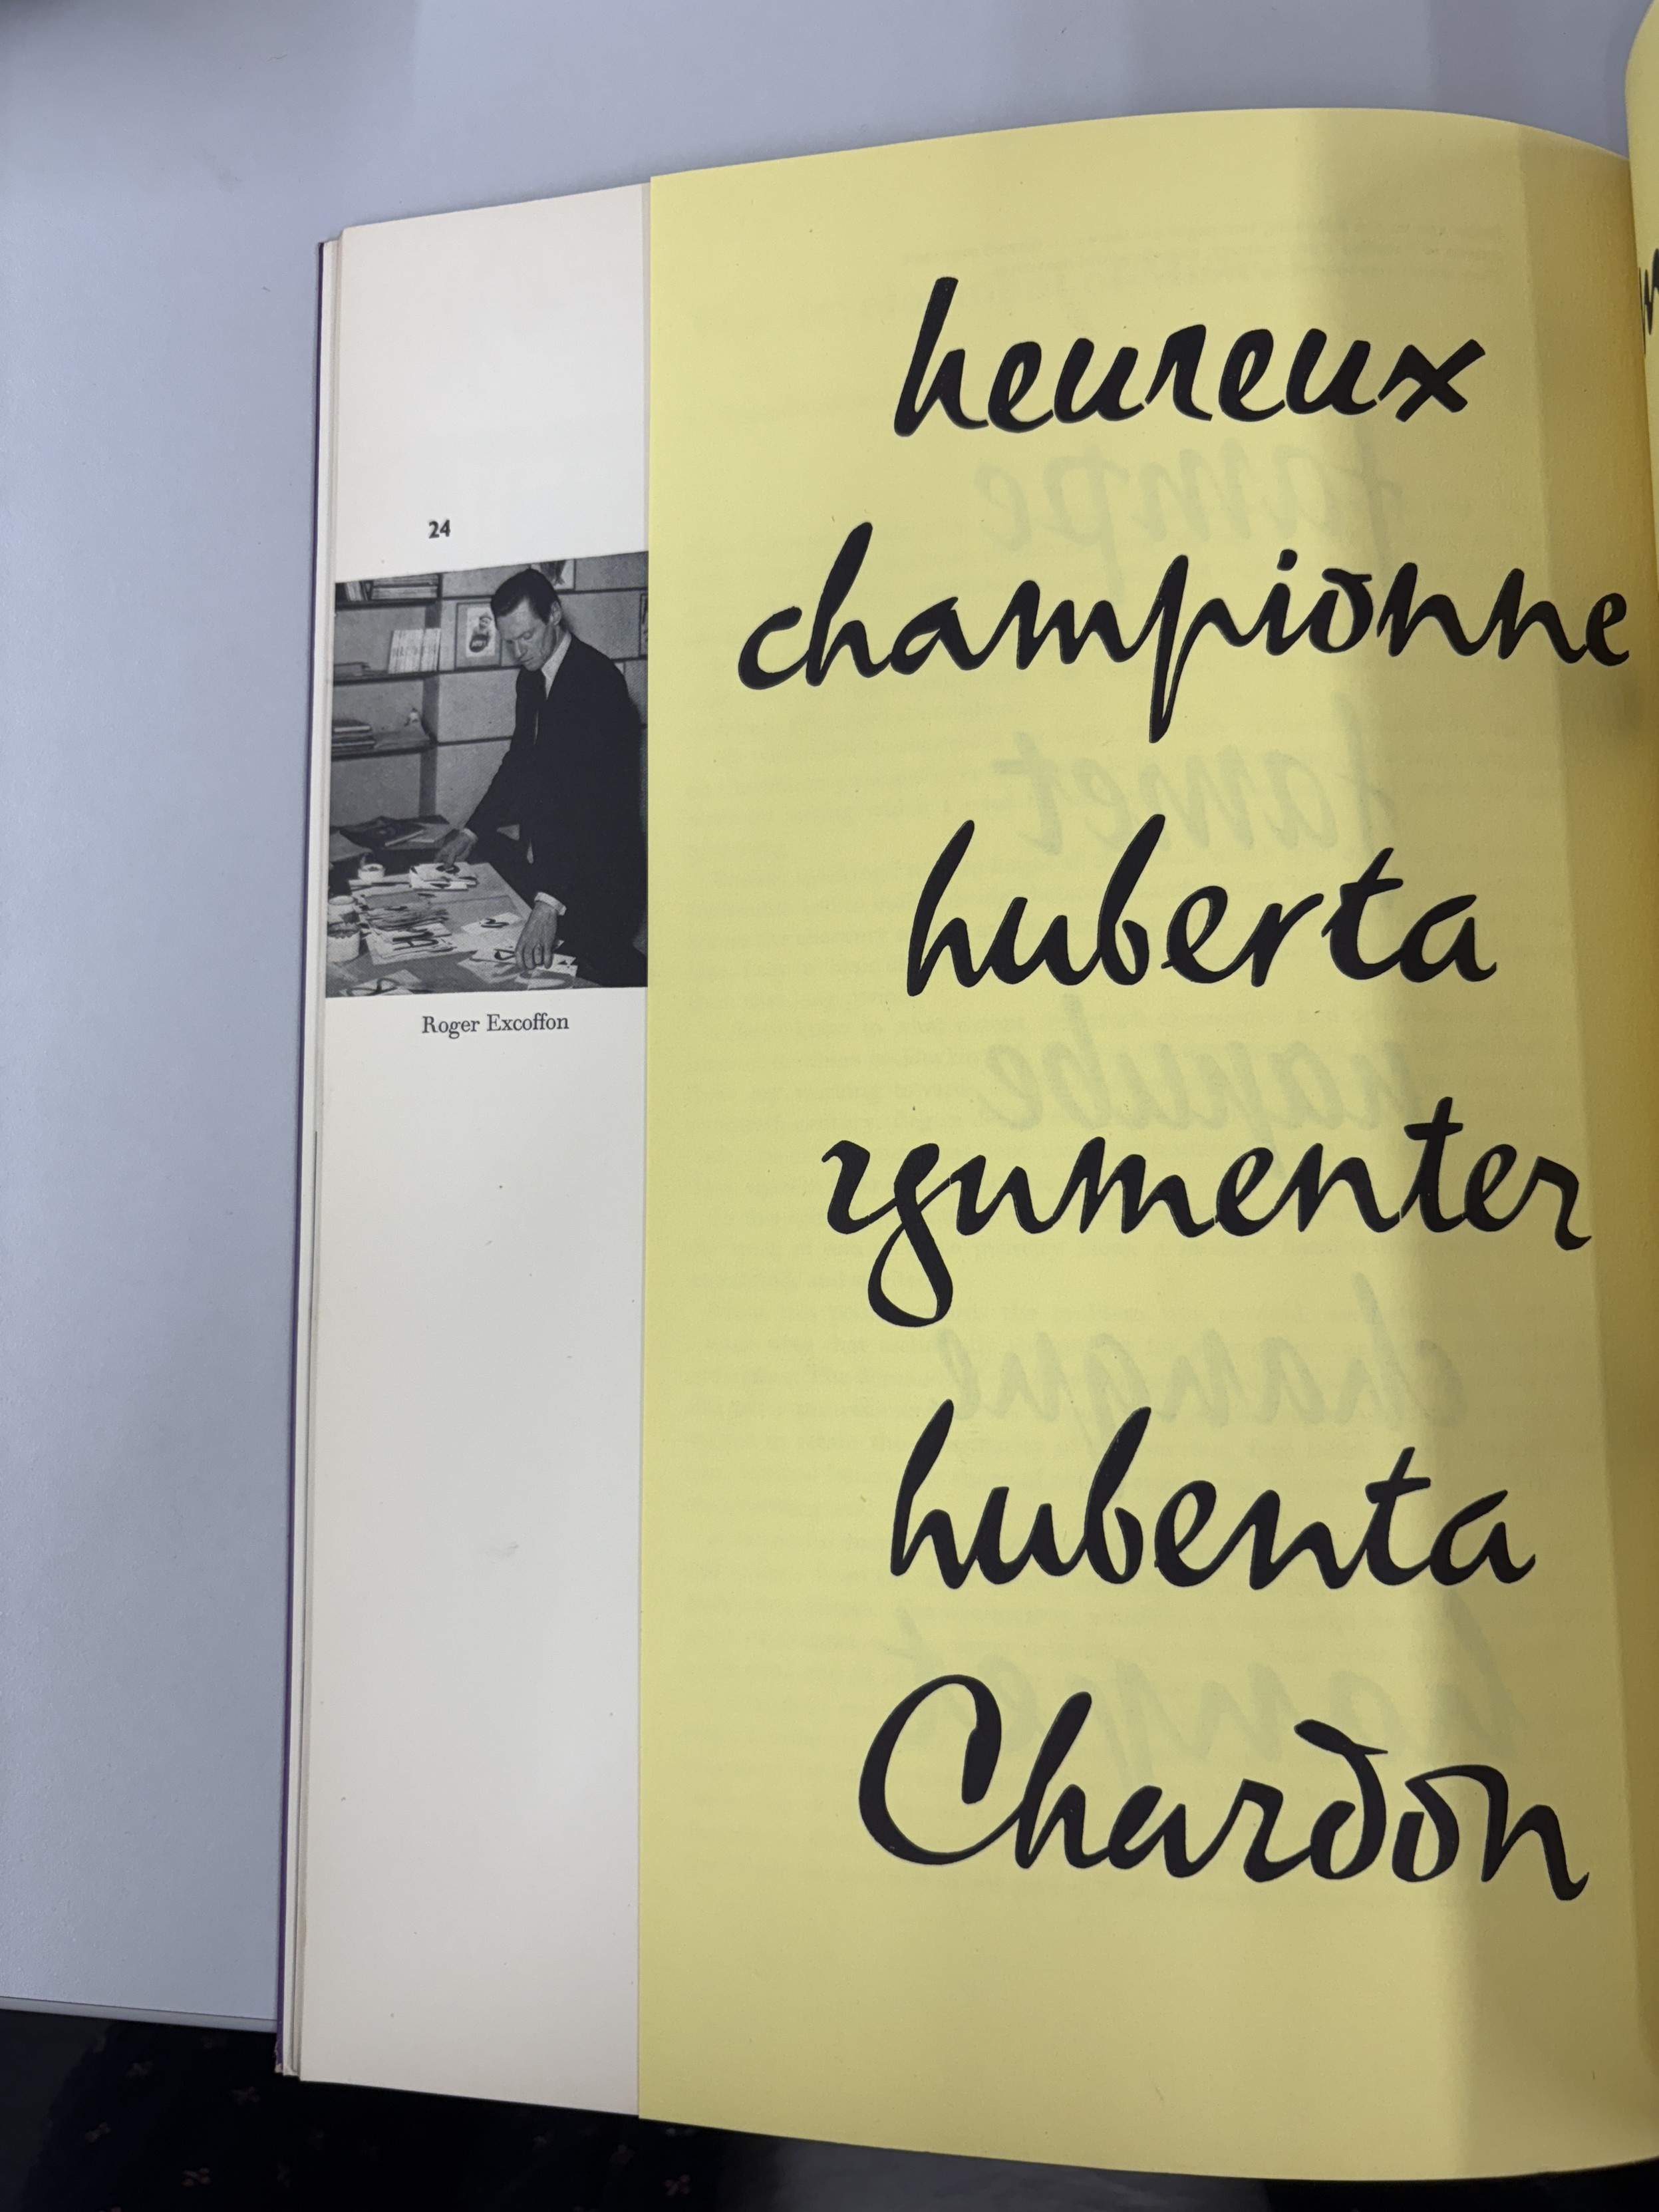 24
Roger Excoffon
heureux
championne
huberta
rgumenter
hubenta
Chardon